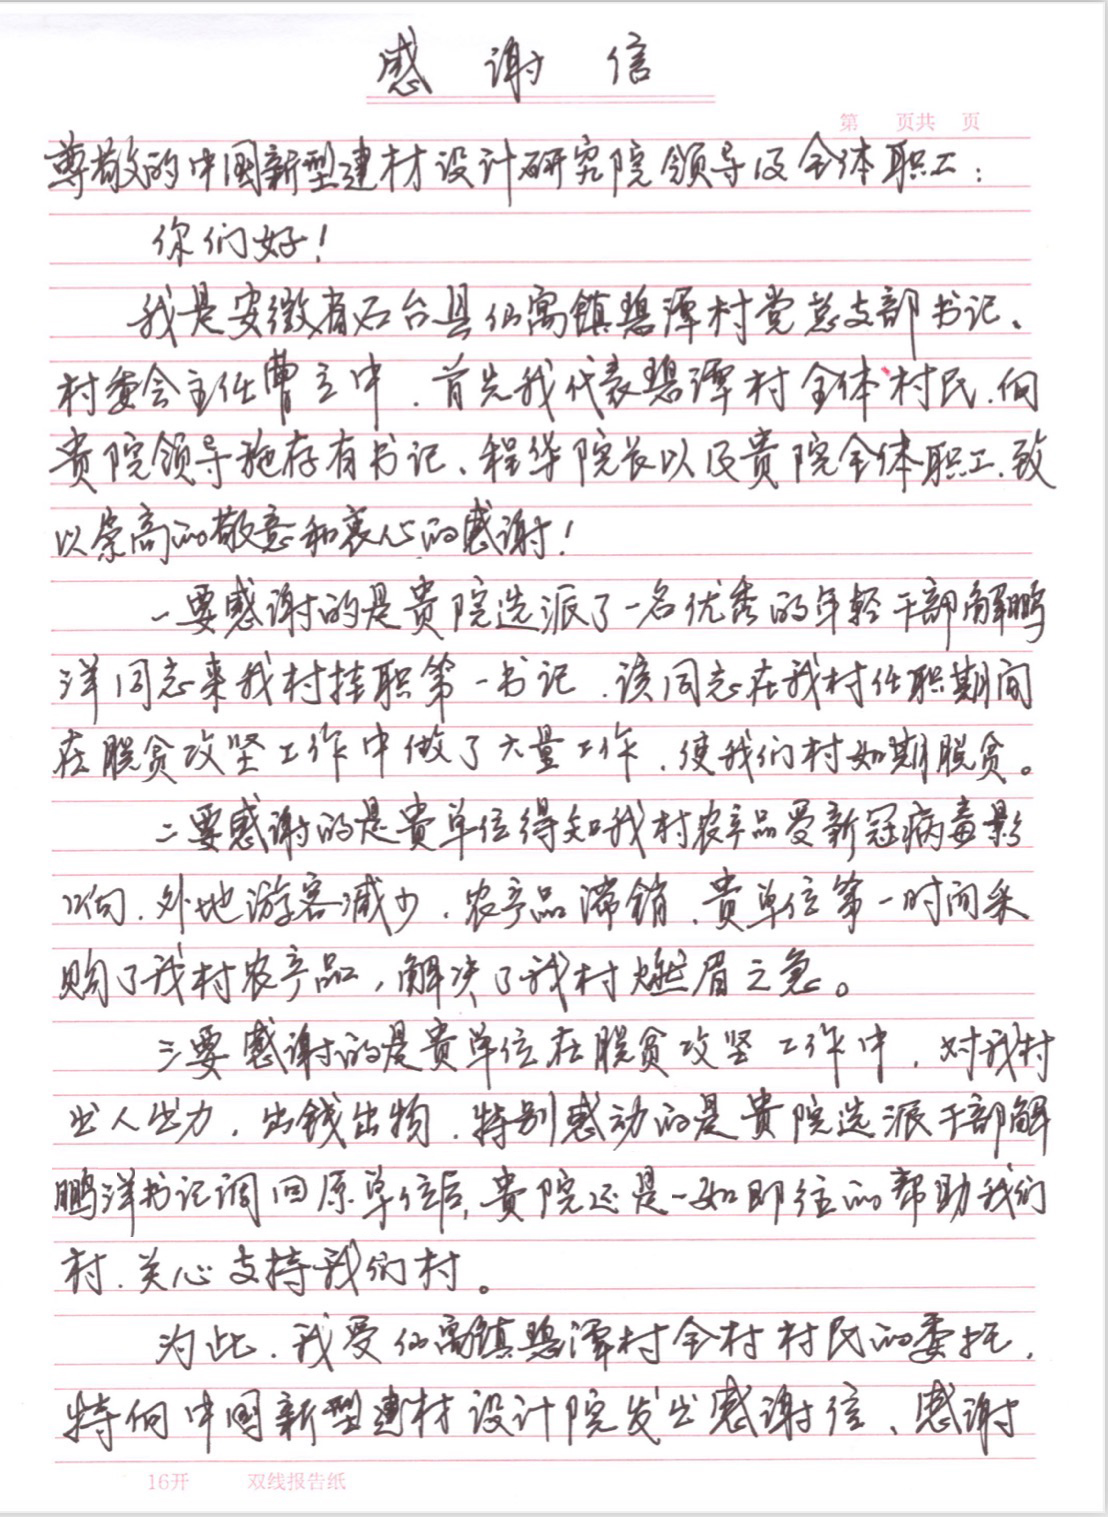 感谢信
第 页共 页
尊敬的中国新型建材设计研究院领导及全体职工：
你们好！
我是安徽省石台县仙寓镇碧潭村党总支部书记、
村委会主任曹立中，首先我代表碧潭村全体村民，向
贵院领导施存有书记、程华院长以及贵院全体职工、致
以崇高的敬意和衷心的感谢！
一要感谢的是贵院选派了一名优秀的年轻干部解鹏
洋同志来我村挂职第一书记，该同志在我村任职期间
在脱贫攻坚工作中做了大量工作，使我们村如期脱贫。
二要感谢的是贵单位得知我村农产品受新冠病毒影
响，外地游客减少，农产品滞销，贵单位第一时间采
购了我村农产品，解决了我村燃眉之急。
三要感谢的是贵单位在脱贫攻坚工作中，对我村
出人出力，出钱出物，特别感动的是贵院选派干部解
鹏洋书记调回原单位后，贵院还是一如即往的帮助我们
村，关心支持我们村。
为此，我受仙寓镇碧潭村全村村民的委托，
特向中国新型建材设计院发出感谢信、感谢
16开 双线报告纸